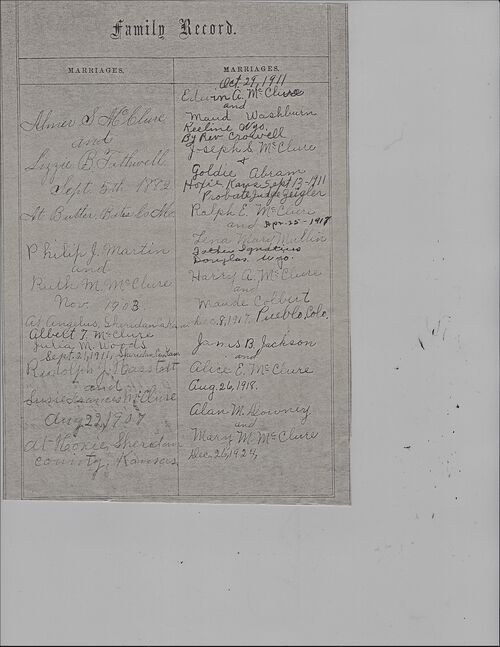 Family Record.
MARRIAGES.
Almer S McClure
and
Lizzie B. Fithwell
Sept 5th 1882
At Butler, Bates Co Mo.
Philip J. Martin
and
Ruth M. McClure
Nov. 1903
At Angelus, Sheridan
Albert T. McClure
Julia M. Woods
Sept. 21, 1911, Sheridan
Rudolph J. Kasstedt
and
Susie Frances McClure
Aug 22, 1907
At Hoxie, Sheridan
county, Kansas,
MARRIAGES.
Oct 29, 1911
Edwin A. McClure
and
Maud Washburn
Keeline Wyo.
By Rev Crolwell
Joseph S McClure
+
Goldie Abram
Hoxie Kans Sept 13-1911
Probate Judge Geigler
Ralph E. McClure
and Apr-25-1917
Lena Mary Mullin
Father Ignatius
Douglas Wyo.
Harry A. McClure
and
Maude Colbert
Dec. 8, 1917. Pueblo, Colo.
James B. Jackson
and
Alice E. McClure
Aug. 26, 1918.
Alan M. Downey
and
Mary M. McClure
Dec. 26, 1924,